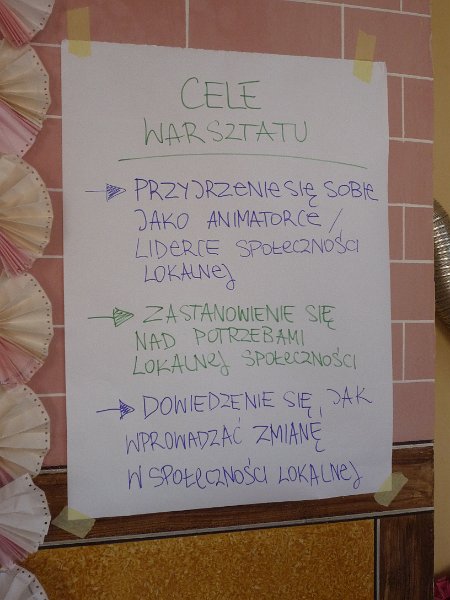 CELE
WARSZTATU
PRZYJRZENIE SIĘ SOBIE
JAKO ANIMATORCE /
LIDERCE SPOŁECZNOŚCI
LOKALNEJ
ZASTANOWIENIE SIĘ
NAD POTRZEBAMI
LOKALNEJ SPOŁECZNOŚCI
DOWIEDZENIE SIĘ, JAK
WPROWADZAĆ ZMIANĘ
W SPOŁECZNOŚCI LOKALNEJ